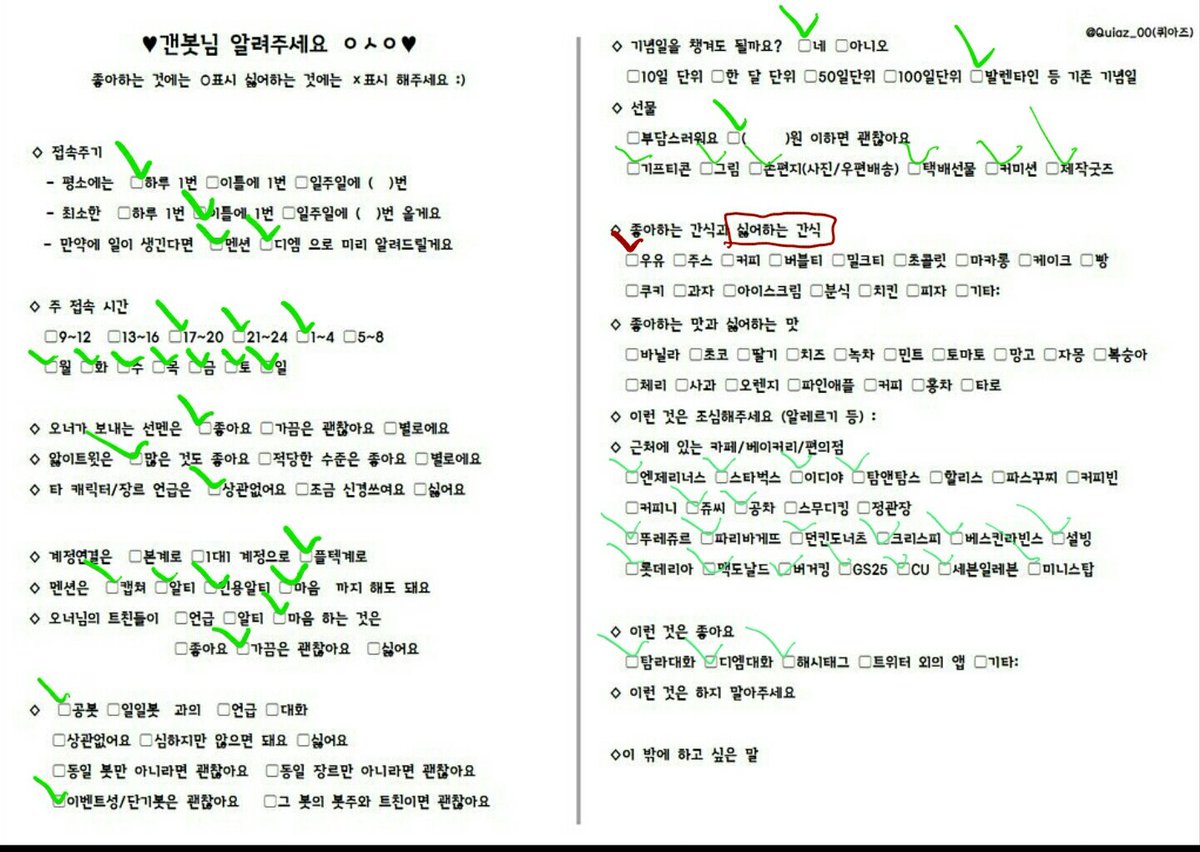 ♥갠봇님 알려주세요 ㅇㅅㅇ♥
좋아하는 것에는 O표시 싫어하는 것에는 x표시 해주세요 :)
◇ 접속주기
- 평소에는 □하루 1번 □이틀에 1번 □일주일에 ( )번
- 최소한 □하루 1번 □이틀에 1번 □일주일에 ( )번 올게요
- 만약에 일이 생긴다면 □멘션 □디엠 으로 미리 알려드릴게요
◇ 주 접속 시간
□9~12 □13~16 □17~20 □21~24 □1~4 □5~8
□월 □화 □수 □목 □금 □토 □일
◇ 오너가 보내는 선멘은 □좋아요 □가끔은 괜찮아요 □별로에요
◇ 앓이트윗은 □많은 것도 좋아요 □적당한 수준은 좋아요 □별로에요
◇ 타 캐릭터/장르 언급은 □상관없어요 □조금 신경쓰여요 □싫어요
◇ 계정연결은 □본계로 □1대1 계정으로 □플텍계로
◇ 멘션은 □캡쳐 □알티 □인용알티 □마음 까지 해도 돼요
◇ 오너님의 트친들이 □언급 □알티 □마음 하는 것은
□좋아요 □가끔은 괜찮아요 □싫어요
◇ □공봇 □일일봇 과의 □언급 □대화
□상관없어요 □심하지만 않으면 돼요 □싫어요
□동일 봇만 아니라면 괜찮아요 □동일 장르만 아니라면 괜찮아요
□이벤트성/단기봇은 괜찮아요 □그 봇의 봇주와 트친이면 괜찮아요
@Quiaz_00(퀴아즈)
◇ 기념일을 챙겨도 될까요? □네 □아니오
□10일 단위 □한 달 단위 □50일단위 □100일단위 □발렌타인 등 기존 기념일
◇ 선물
□부담스러워요 □( )원 이하면 괜찮아요
□기프티콘 □그림 □손편지(사진/우편배송) □택배선물 □커미션 □제작굿즈
◇ 좋아하는 간식과 싫어하는 간식
□우유 □주스 □커피 □버블티 □밀크티 □초콜릿 □마카롱 □케이크 □빵
□쿠키 □과자 □아이스크림 □분식 □치킨 □피자 □기타:
◇ 좋아하는 맛과 싫어하는 맛
□바닐라 □초코 □딸기 □치즈 □녹차 □민트 □토마토 □망고 □자몽 □복숭아
□체리 □사과 □오렌지 □파인애플 □커피 □홍차 □타로
◇ 이런 것은 조심해주세요 (알레르기 등) :
◇ 근처에 있는 카페/베이커리/편의점
□엔제리너스 □스타벅스 □이디야 □탐앤탐스 □할리스 □파스꾸찌 □커피빈
□커피니 □쥬씨 □공차 □스무디킹 □정관장
□뚜레쥬르 □파리바게뜨 □던킨도너츠 □크리스피 □베스킨라빈스 □설빙
□롯데리아 □맥도날드 □버거킹 □GS25 □CU □세븐일레븐 □미니스탑
◇ 이런 것은 좋아요
□탐라대화 □디엠대화 □해시태그 □트위터 외의 앱 □기타:
◇ 이런 것은 하지 말아주세요
◇이 밖에 하고 싶은 말